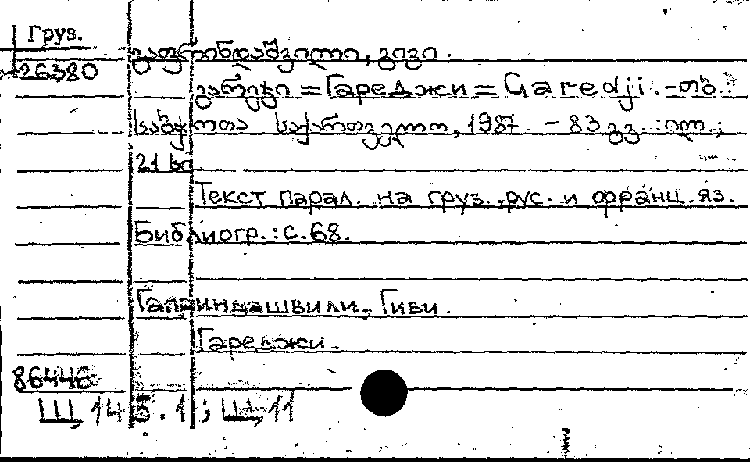 Груз.
26380
გაფრინდაშვილი, გივი.
გარეჯი = Гареджи = Garedji. - თბ.:
საბჭოთა საქართველო, 1987. - 83 გვ. : ილ.;
21 სმ.
Текст парал. на груз., рус. и франц. яз.
Библиогр.: с. 68.
Гаприндашвили, Гиви.
Гареджи.
86446
Щ, 145.1; Щ, 11